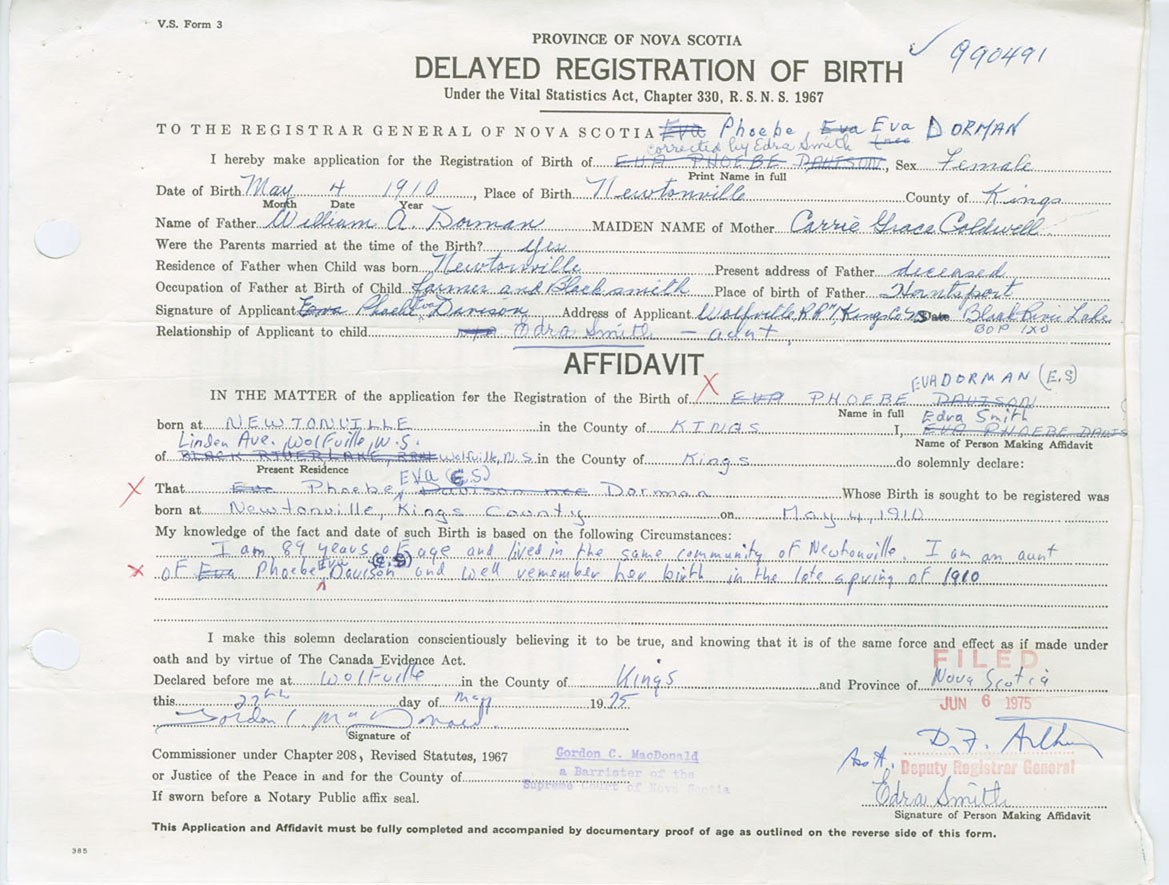 V.S. Form 3
PROVINCE OF NOVA SCOTIA
990491
DELAYED REGISTRATION OF BIRTH
Under the Vital Statistics Act, Chapter 330, R.S.N.S. 1967
TO THE REGISTRAR GENERAL OF NOVA SCOTIA Eva Phoebe, Eva Eva DORMAN
corrected by Edra Smith
I hereby make application for the Registration of Birth of EVA PHOEBE DAVISON, Sex Female
Print Name in full
Date of Birth May 4 1910, Place of Birth Newtonville County of Kings
Month Date Year
Name of Father William A. Dorman MAIDEN NAME of Mother Carrie Grace Coldwell
Were the Parents married at the time of the Birth? yes
Residence of Father when Child was born Newtonville Present address of Father deceased
Occupation of Father at Birth of Child farmer and Blacksmith Place of birth of Father Hantsport
Signature of Applicant Eva Phoebe Eva Davison Address of Applicant Wolfville, R.R.#1, Kings Co. N.S. Date Black River Lake
BOP 1X0
Relationship of Applicant to child Edra Smith - aunt
AFFIDAVIT
EVA DORMAN (E.S)
IN THE MATTER of the application for the Registration of the Birth of X EVA PHOEBE DAVISON
Name in full Edra Smith
born at NEWTONVILLE in the County of KINGS I, EVA PHOEBE DAVIS
Name of Person Making Affidavit
Linden Ave. Wolfville, N.S.
of BLACK RIVER LAKE, Wolfville, N.S. in the County of Kings do solemnly declare:
Present Residence
EVA (E.S)
X That Eva Phoebe Davison nee Dorman Whose Birth is sought to be registered was
born at Newtonville, Kings County on May 4, 1910
My knowledge of the fact and date of such Birth is based on the following Circumstances:
I am 89 years of age and lived in the same community of Newtonville. I am an aunt
X of Eva Phoebe Eva Davison (E.S) and well remember her birth in the late spring of 1910
I make this solemn declaration conscientiously believing it to be true, and knowing that it is of the same force and effect as if made under
oath and by virtue of The Canada Evidence Act.
FILED
Declared before me at Wolfville in the County of Kings and Province of Nova Scotia
this 27th day of May 1975
JUN 6 1975
Gordon C. MacDonald
Signature of
D.F. Arthur
Commissioner under Chapter 208, Revised Statutes, 1967
Gordon C. MacDonald
or Justice of the Peace in and for the County of
a Barrister of the
Supreme Court of Nova Scotia
Deputy Registrar General
If sworn before a Notary Public affix seal.
Edra Smith
Signature of Person Making Affidavit
This Application and Affidavit must be fully completed and accompanied by documentary proof of age as outlined on the reverse side of this form.
385